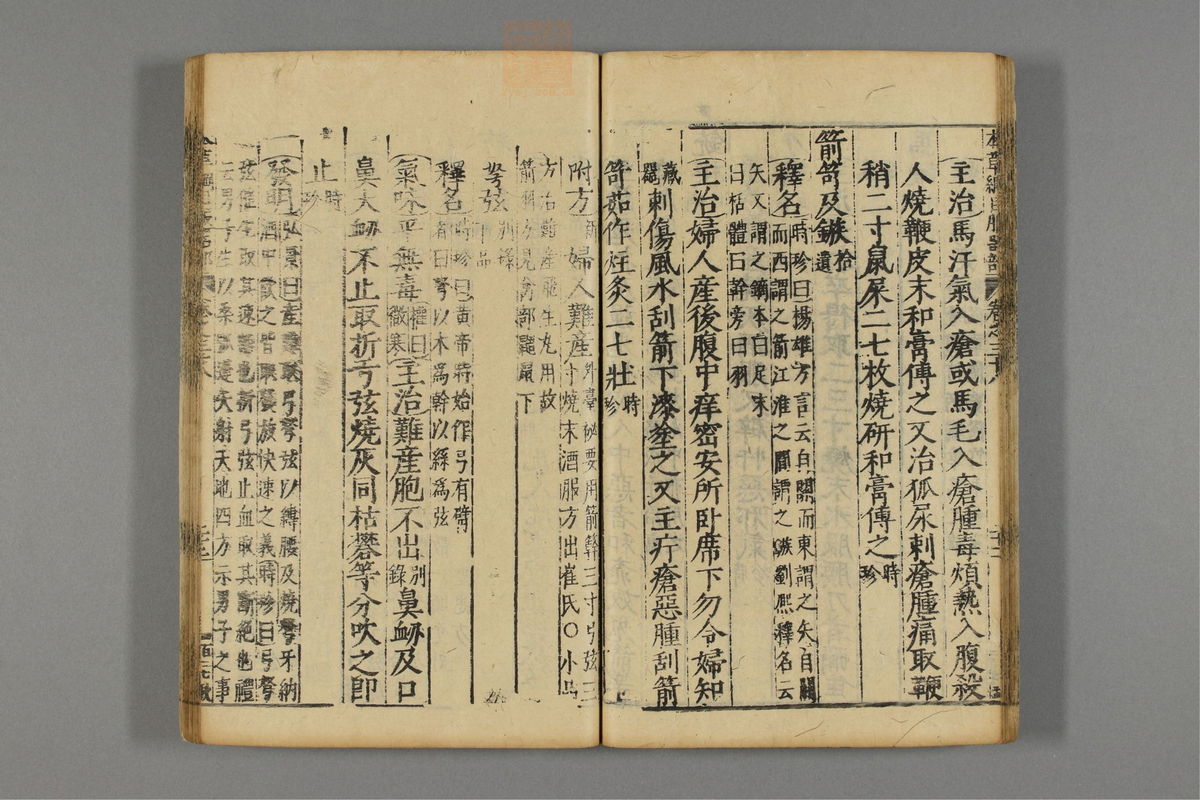 主治馬汗氣入瘡或馬毛入瘡腫毒煩熱入腹殺
人燒鞭皮末和膏傅之又治狐尿刺瘡腫痛取鞭
稍二寸鼠屎二七枚燒研和膏傅之時珍
箭笴及鏃拾遺
釋名時珍曰楊雄方言云自關而東謂之矢自關
而西謂之箭江淮之間謂之鏃劉熙釋名云
矢又謂之鏑本曰足末
曰栝體曰幹旁曰羽
主治婦人産後腹中痒密安所卧席下勿令婦知
藏器刺傷風水刮箭下漆塗之又主疔瘡惡腫刮箭
笴茹作炷灸二七壯時珍
附方新婦人難産外臺秘要用箭簳三寸弓弦三
寸燒末酒服方出崔氏〇小品
方治難産飛生丸用故
箭羽方見禽部鼯鼠下
弩弦別錄下品
釋名時珍曰黃帝時始作弓有臂
者曰弩以木爲幹以絲爲弦
氣味平無毒權曰微寒主治難産胞不出別錄鼻衄及口
鼻大衄不止取折弓弦燒灰同枯礬等分吹之即
止時珍
發明弘景曰産難取弓弩弦以縛腰及燒弩牙納
酒中飲之皆取發放快速之義時珍曰弓弩
弦催生取其速離也折弓弦止血取其斷絶也禮
云男子生以桑弧蓬矢射天地四方示男子之事